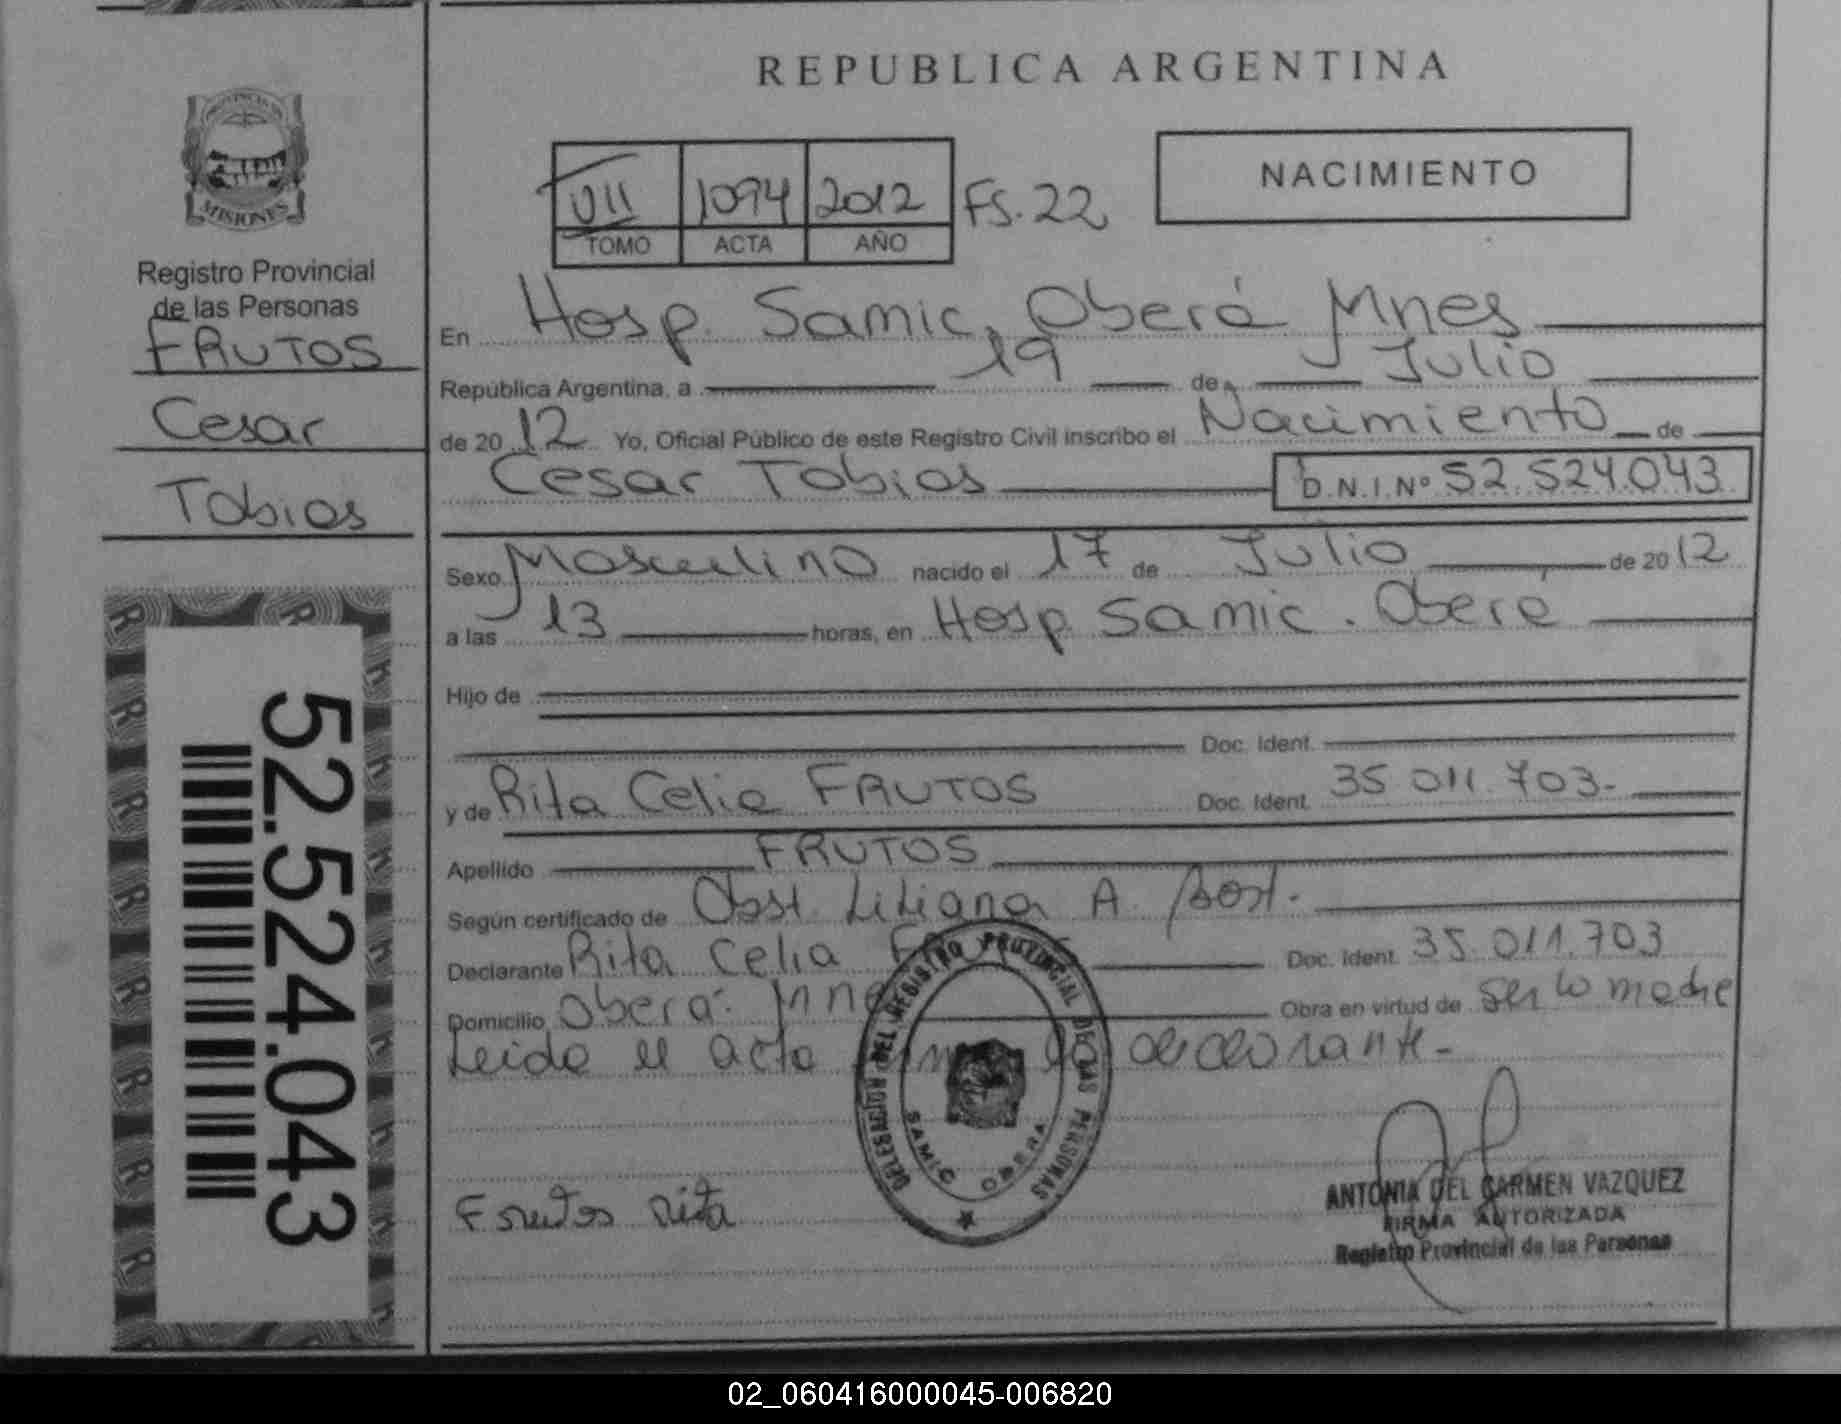 REPUBLICA ARGENTINA
PROVINCIA DE
MISIONES
Registro Provincial
de las Personas
FRUTOS
Cesar
Tobias
52.524.043
VII 1094 2012 FS. 22
TOMO ACTA AÑO
NACIMIENTO
En Hosp. Samic, Oberá Mnes
República Argentina, a 19 de Julio
de 20 12 Yo, Oficial Público de este Registro Civil inscribo el Nacimiento de
Cesar Tobias D.N.I.Nº 52.524.043
Sexo Masculino nacido el 17 de Julio de 20 12
a las 13 horas, en Hosp Samic. Oberá
Hijo de
Doc. Ident.
y de Rita Celia FRUTOS Doc. Ident. 35.011.703-
Apellido FRUTOS
Según certificado de Obst. Liliana A.
Declarante Rita Celia Doc. Ident. 35.011.703
Domicilio Oberá. Mnes Obra en virtud de ser la madre
Leida el acta la declarante-
DELEGACION DEL REGISTRO PROVINCIAL DE LAS PERSONAS
SAMIC OBERA
Frutos Rita
ANTONIA DEL CARMEN VAZQUEZ
FIRMA AUTORIZADA
Registro Provincial de las Personas
02_060416000045-006820